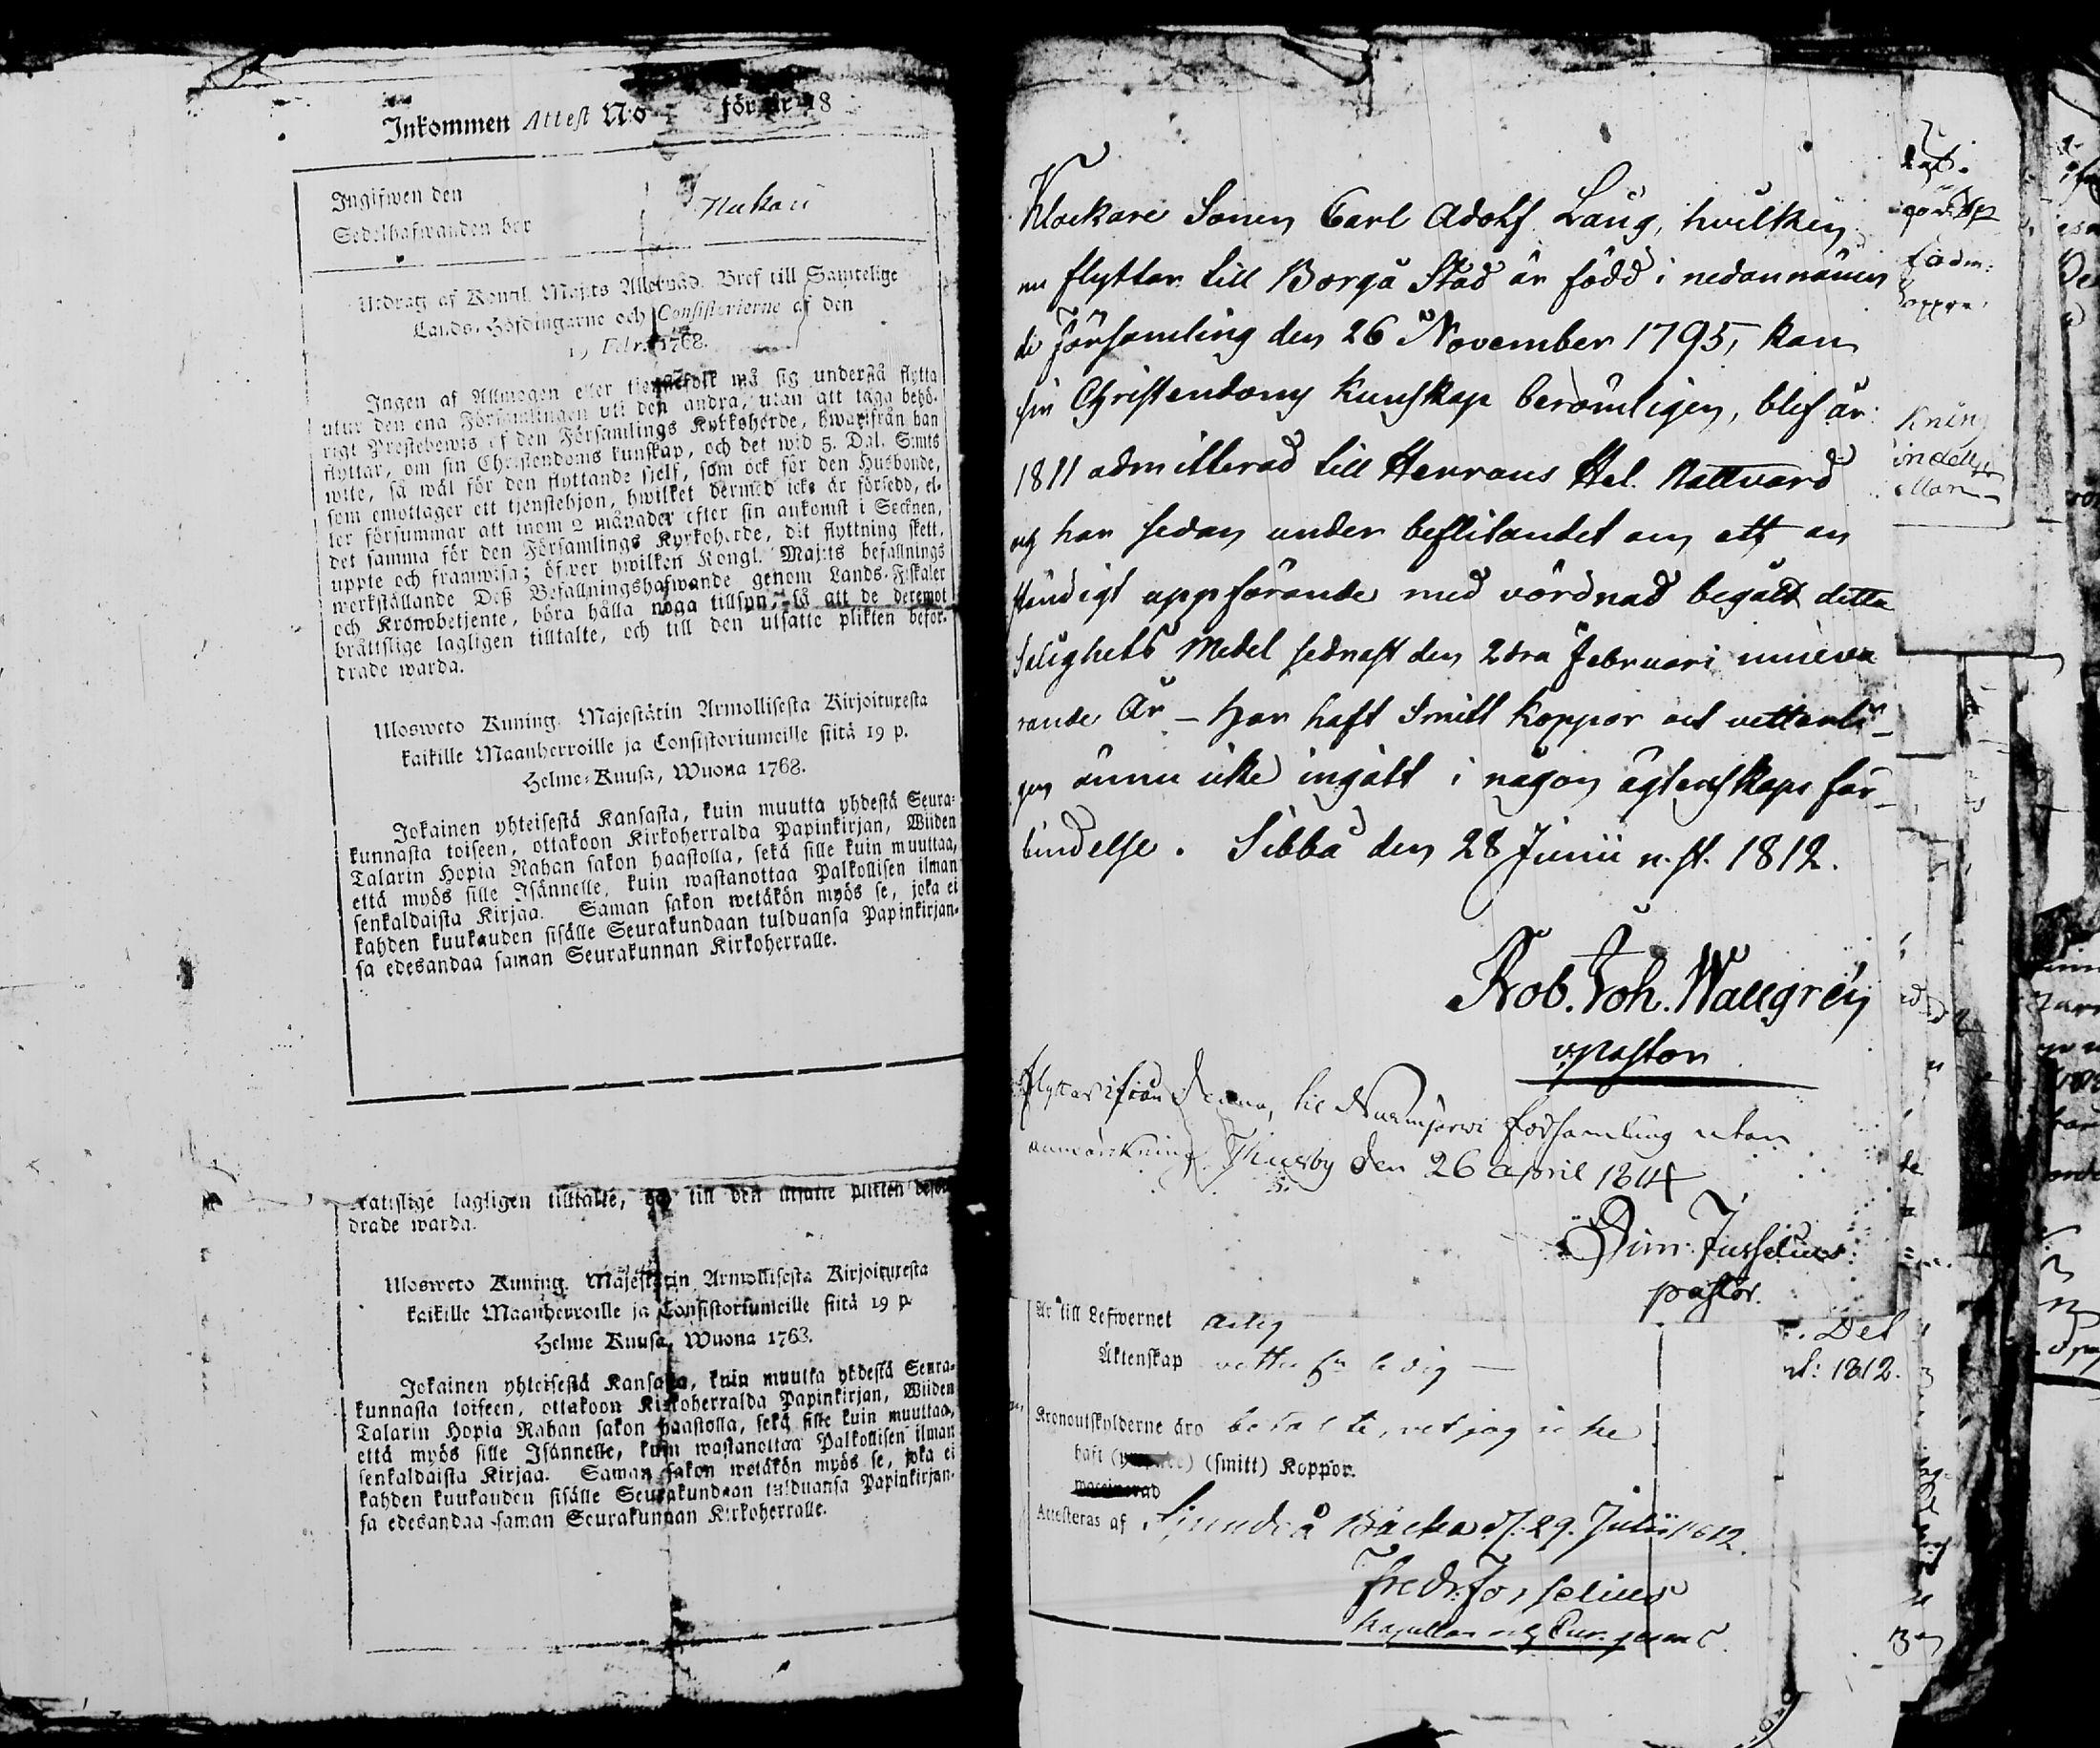 Inkommen Attest No för år 18
Ingifwen den
Sedelhafwanden bor
Utdrag af Kongl. Maj:ts Allernåd. Bref till Samtelige
Lands-Höfdingarne och Consistorierne af den
19 Febr. 1768.
Ingen af Allmogen eller tjenstefolk må sig understå flytta
utur den ena Församlingen uti den andra, utan att taga behö-
rigt Prestebewis af den Församlings Kyrkoherde, hwarifrån han
flyttar, om sin Christendoms kunskap, och det wid 5. Dal. S:mts
wite, så wäl för den flyttande sjelf, som ock för den Husbonde,
som emottager ett tjenstehjon, hwilket dermed icke är försedd, el-
ler försummar att inom 2 månader efter sin ankomst i Socknen,
det samma för den Församlings Kyrkoherde, dit flyttning skett,
uppte och framwisa; öfwer hwilken Kongl. Maj:ts befallnings
werkställande Deß Befallningshafwande genom Lands-Fiskaler
och Kronobetjente, böra hålla noga tillsyn, så att de deremot
bråttslige lagligen tilltalte, och till den utsatte plikten befor-
drade warda.
Ulosweto Kuning. Majestätin Armollisesta Kirjoituxesta
kaikille Maanherroille ja Consistoriumeille siitä 19 p.
Helme-Kuusa, Wuona 1768.
Jokainen yhteisestä Kansasta, kuin muutta yhdestä Seura-
kunnasta toiseen, ottakoon Kirkoherralda Papinkirjan, Wiiden
Talarin Hopia Rahan sakon haastolla, sekä sille kuin muuttaa,
että myös sille Isännelle, kuin wastanottaa Palkollisen ilman
senkaldaista Kirjaa. Saman sakon wetäkön myös se, joka ei
kahden kuukauden sisälle Seurakundaan tulduansa Papinkirjan-
sa edesandaa saman Seurakunnan Kirkoherralle.
lagligen tilltalte, och till den utsatte plikten
drade warda.
Ulosweto Kuning. Majestätin Armollisesta Kirjoituxesta
kaikille Maanherroille ja Consistoriumeille siitä 19 p.
Helme Kuusa, Wuona 1763.
Jokainen yhteisestä Kansasta, kuin muutta yhdestä Seura-
kunnasta toiseen, ottakoon Kirkoherralda Papinkirjan, Wiiden
Talarin Hopia Rahan sakon haastolla, sekä sille kuin muuttaa,
että myös sille Isännelle, kuin wastanottaa Palkollisen ilman
senkaldaista Kirjaa. Saman sakon wetäkön myös se, joka ei
kahden kuukauden sisälle Seurakundaan tulduansa Papinkirjan-
sa edesandaa saman Seurakunnan Kirkoherralle.
Klockare Sonen Carl Adolf Laug, hvilken
nu flyttar till Borgå Stad är född i nedannämn
de Församling den 26 November 1795, kan
sin Christendoms Kunskap berömligen, blef år
1811 admitterad till Herrans Hel. Nattvard
og har sedan under beflitandet om ett an
ständigt uppförande med vördnad begått detta
Salighets Medel sednast den 2dra Februari inneva
rande År - Har haft Smitt Koppor och vetterli-
gen ännu icke ingått i någon ägtenskaps för-
bindelse. Sibbå den 28 Junii n. st. 1812.
Rob. Joh. Wallgrén
v. Pastor
flyttar ifrån denna, til Nurmijärwi församling utan
anmärkning Thusby den 26 april 1814
Sim: Jusselius
pastor.
Är till Lefwernet ärlig
Äktenskap ledig
Kronoutskylderne äro betalte, vet jag icke
haft (smitt) Koppor.
Attesteras af Sjundeå Bäcka d. 29. Julii 1812.
Fredr. Forselius
Det
1812.